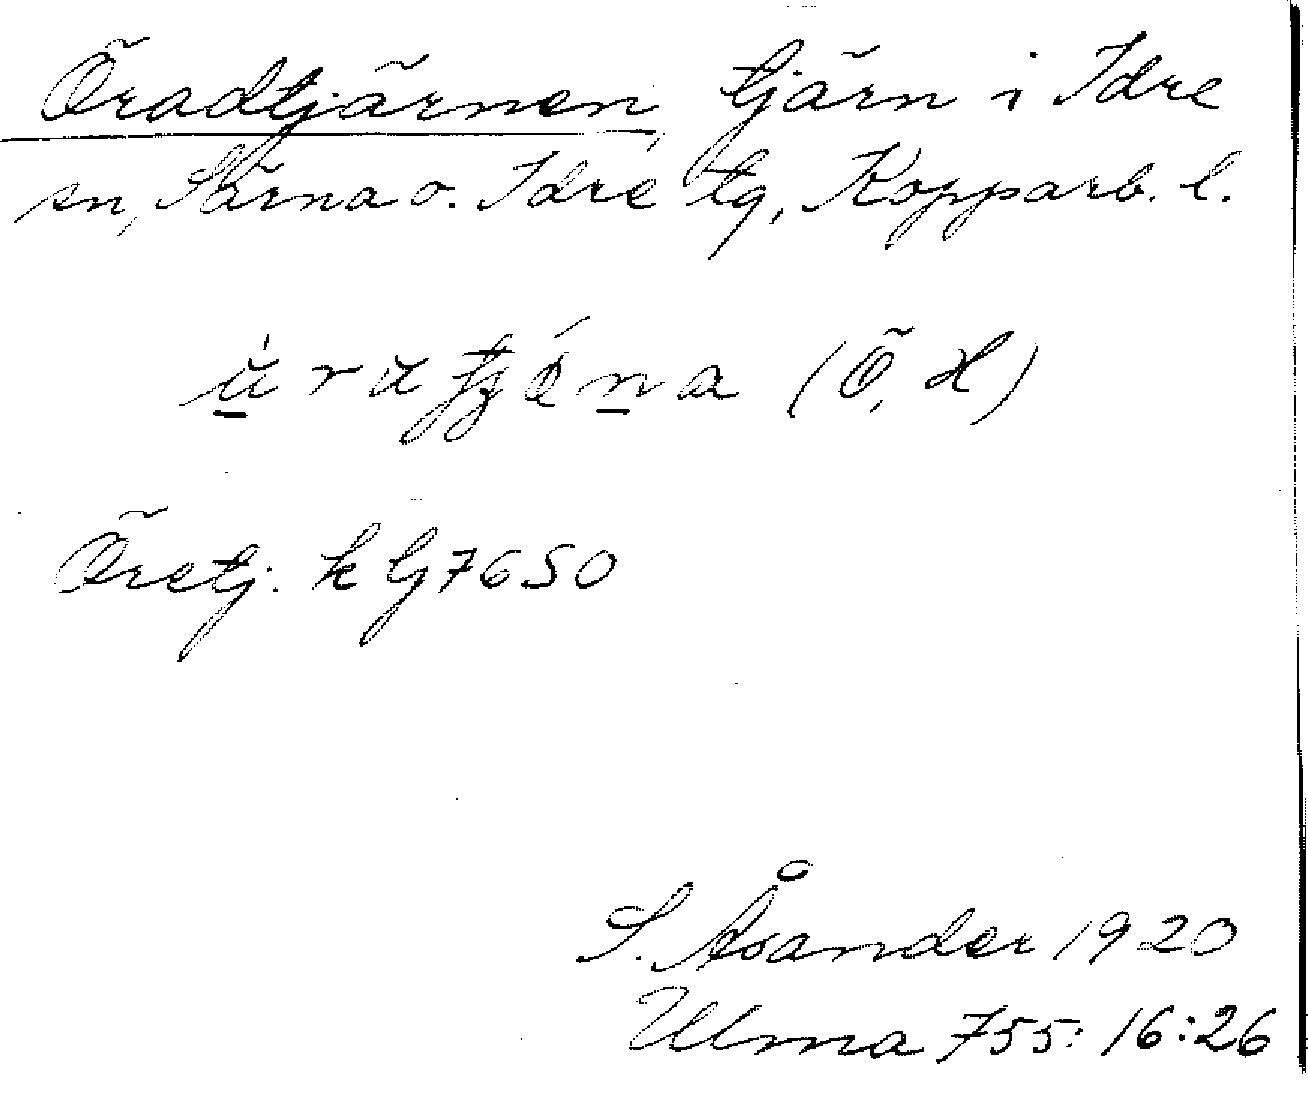 Öradtjärnen, tjärn i Idre
sn, Särna o. Idre tg, Kopparb. l.
(Ö, H)
Öretj. k G7650
S. Åsander 1920
Ulma 755: 16:26